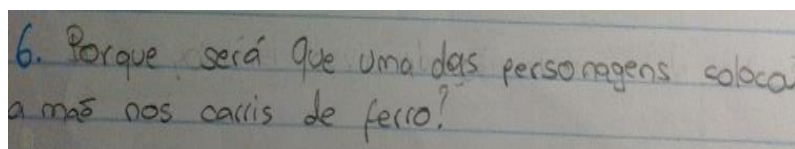 6. Porque será que uma das personagens coloca
a mão nos carris de ferro?